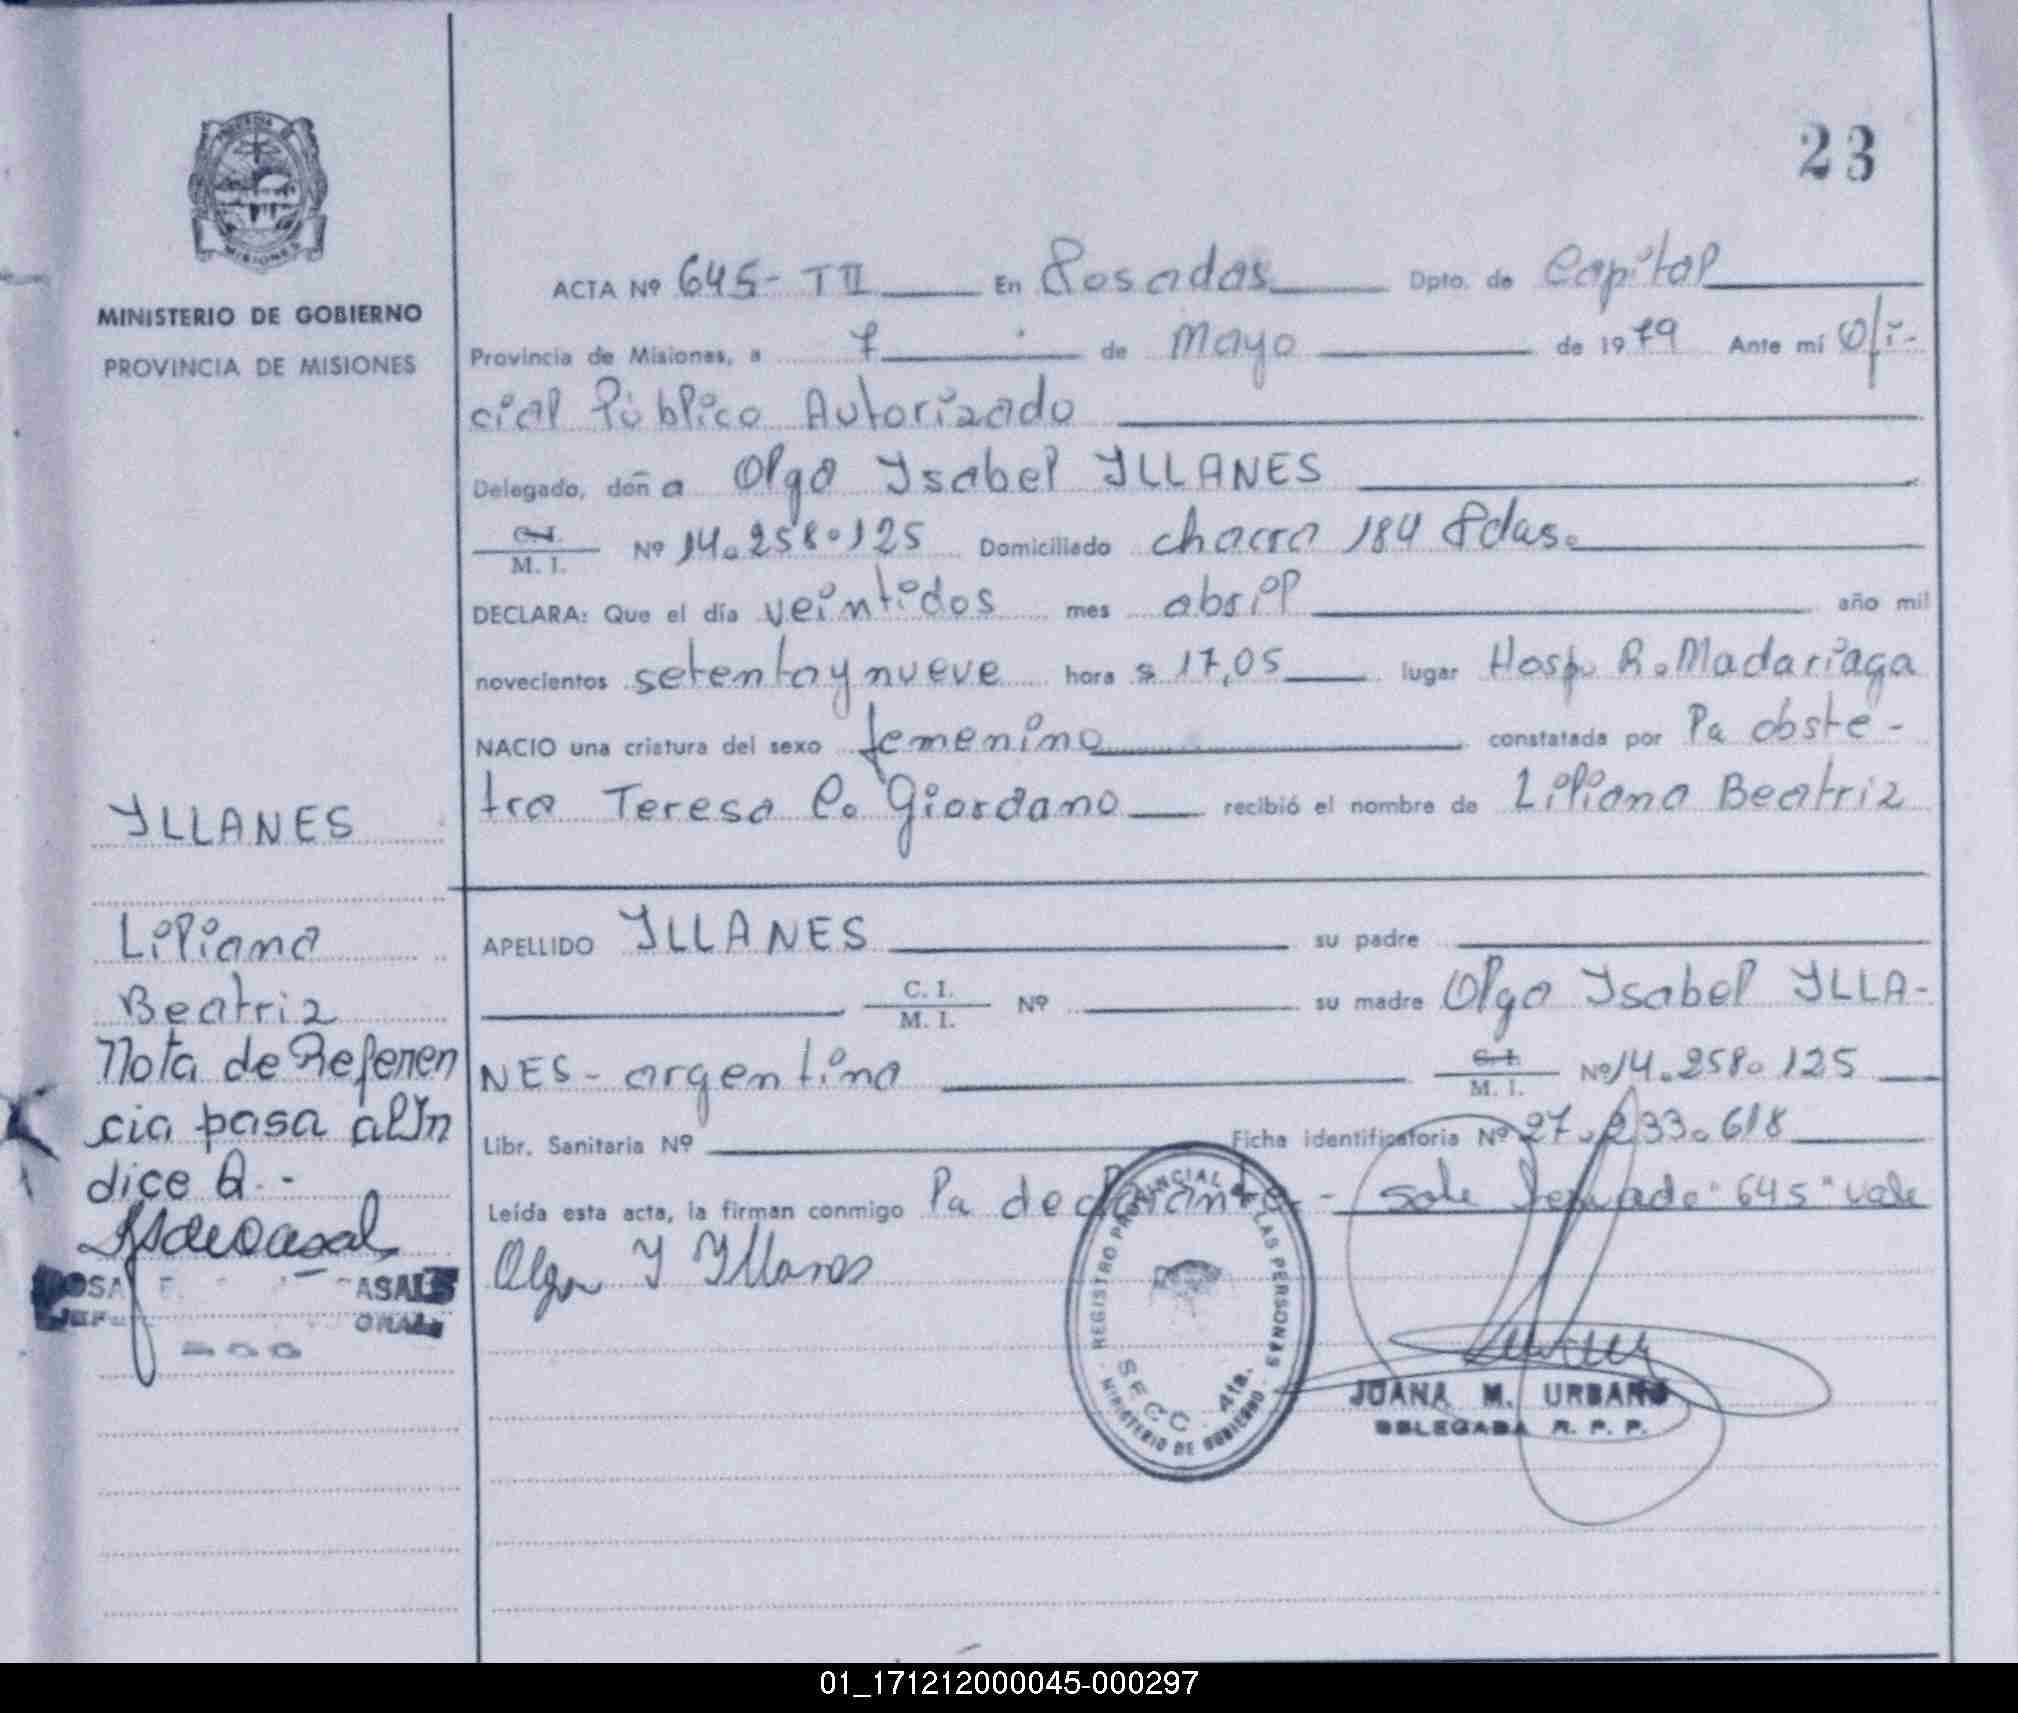 23
MINISTERIO DE GOBIERNO
PROVINCIA DE MISIONES
ACTA Nº 645- T II En Posadas Dpto. de Capital
Provincia de Misiones, a 7 de Mayo de 1979 Ante mí Ofi-
cial Público Autorizado
Delegado, doña Olga Ysabel YLLANES
C.I. M. I. Nº 14.258.125 Domiciliado chacra 184 Pdas.
DECLARA: Que el día veintidos mes abril año mil
novecientos setenta y nueve hora s 17,05 lugar Hosp. R. Madariaga
NACIO una criatura del sexo femenino constatada por la obste-
tra Teresa C. Giordano recibió el nombre de Liliana Beatriz
APELLIDO YLLANES su padre
C. I. M. I. Nº su madre Olga Ysabel YLLA-
NES - argentina C.I. M. I. Nº 14.258.125
Libr. Sanitaria Nº Ficha identificatoria Nº 27.233.618
Leída esta acta, la firman conmigo la declarante.- 645" vale
Olga Y Yllanes
YLLANES
Liliana
Beatriz
Nota de Referen
cia pasa al Yn
dice A.-
OSA F. ASALS
JEF
REGISTRO PROVINCIAL DE LAS PERSONAS
SECC. 4ta.
MINISTERIO DE GOBIERNO
JUANA M. URBANO
DELEGADA R. P. P.
MISIONES
01_171212000045-000297